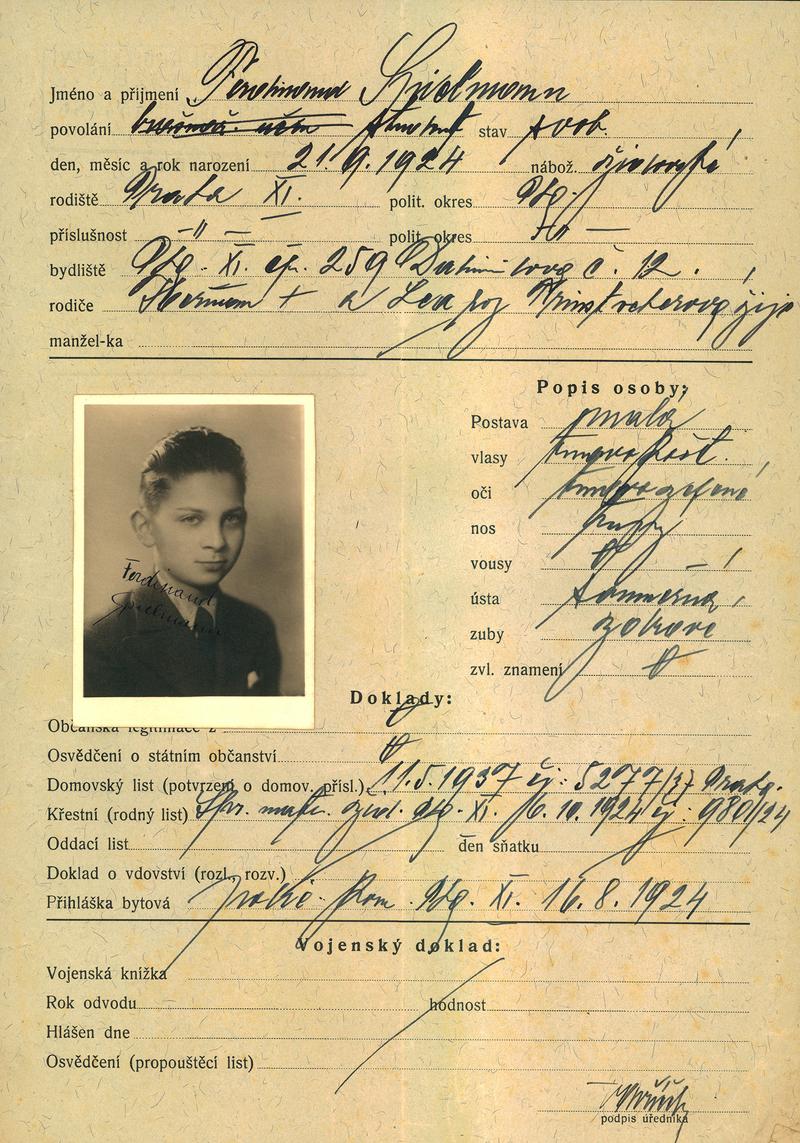 Jméno a příjmení Ferdinand Spielmann
povolání stav svob.
den, měsíc a rok narození 21. 9. 1924 nábož. židovské
rodiště Praha XI. polit. okres
příslušnost -"- polit. okres
bydliště Phg. XI. čp. 259 č. 12.
rodiče Herman + a Lea roz
manžel-ka
Popis osoby:
Postava malá
vlasy tmavokašt.
oči tmavozelené
nos
vousy
ústa souměrná
zuby zdravé
zvl. znamení
Ferdinand
Spielmann
Doklady:
Občanská legitimace z
Osvědčení o státním občanství
Domovský list (potvrzení o domov. přísl.) 11. 5. 1937 čj: 5277/37 Praha.
Křestní (rodný list) XI. 1924 čj: 980/24
Oddací list den sňatku
Doklad o vdovství (rozl., rozv.)
Přihláška bytová XI. 16. 8. 1924
Vojenský doklad:
Vojenská knížka
Rok odvodu hodnost
Hlášen dne
Osvědčení (propouštěcí list)
podpis úředníka